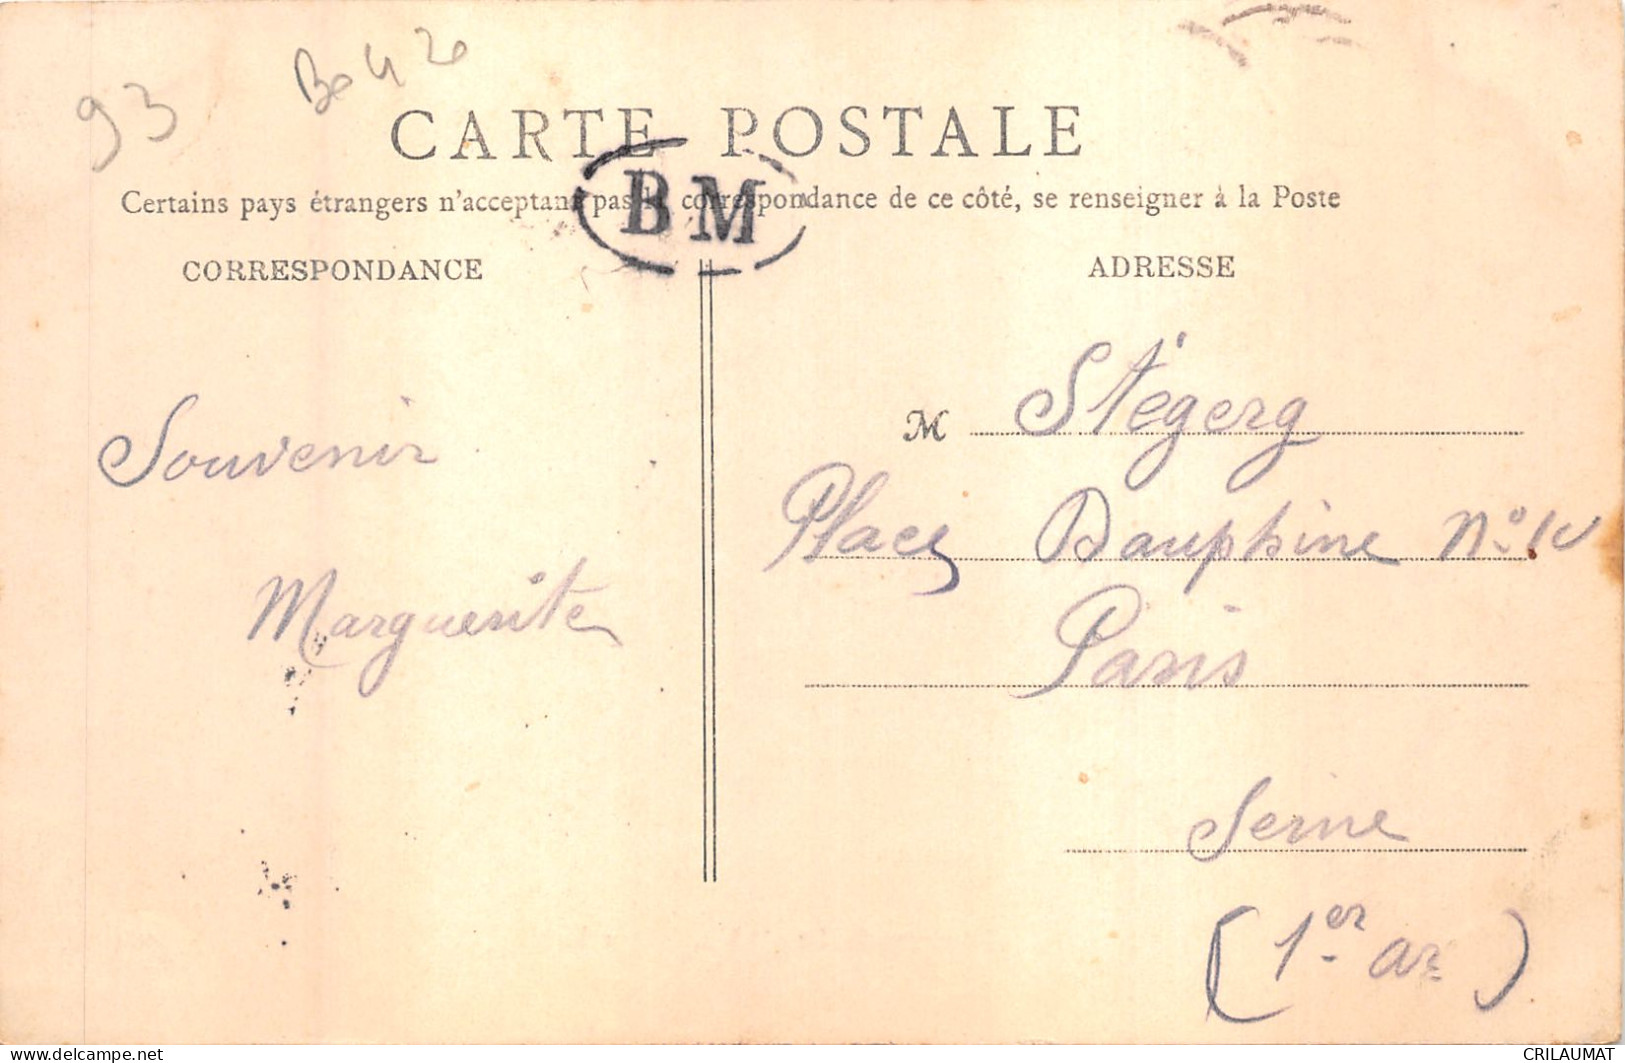 93
CARTE POSTALE
BM
Certains pays étrangers n'acceptant pas la correspondance de ce côté, se renseigner à la Poste
CORRESPONDANCE
ADRESSE
Souvenir
Marguerite
M Stégerg
Place Dauphine N°
Paris
Seine
(1er ar)
delcampe.net
CRILAUMAT